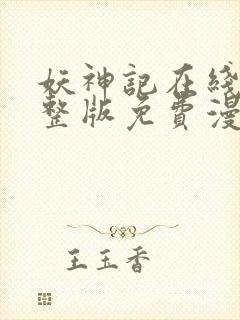 妖神記在綫
整版免費漫
王玉香